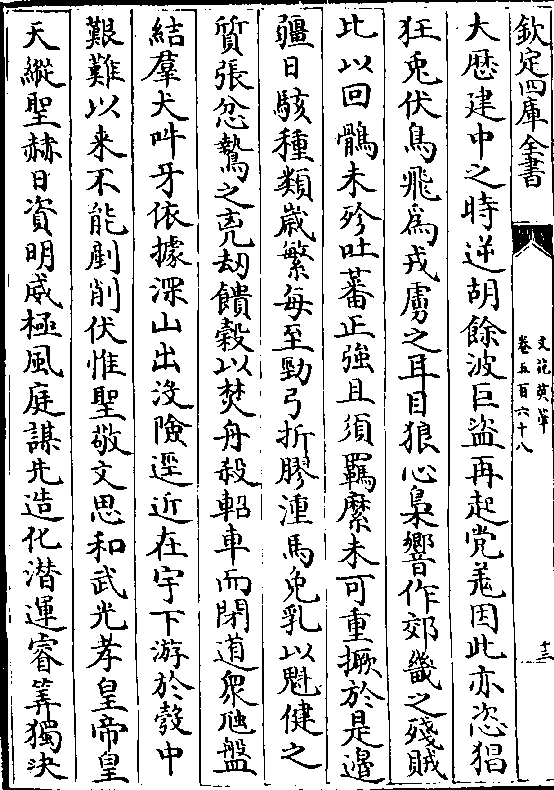 欽定四庫全書
文苑英華
卷五百六十八
十三
大厯建中之時逆胡餘波巨盜再起党羌因此亦恣猖
狂兎伏鳥飛為戎虜之耳目狼心梟響作郊畿之殘賊
比以回鶻未殄吐蕃正強且須羈縻未可重撅於是邉
疆日駭種類嵗繁每至勁弓折膠湩馬免乳以魁健之
質張忿鷙之克刼饋糓以焚舟殺軺車而閉道衆虺盤
結羣犬吽牙依據深山出没險逕近在宇下游於彀中
艱難以来不能剷削伏惟聖敬文思和武光孝皇帝皇
天縱聖赫日資明威極風庭謀先造化潜運睿筭獨决